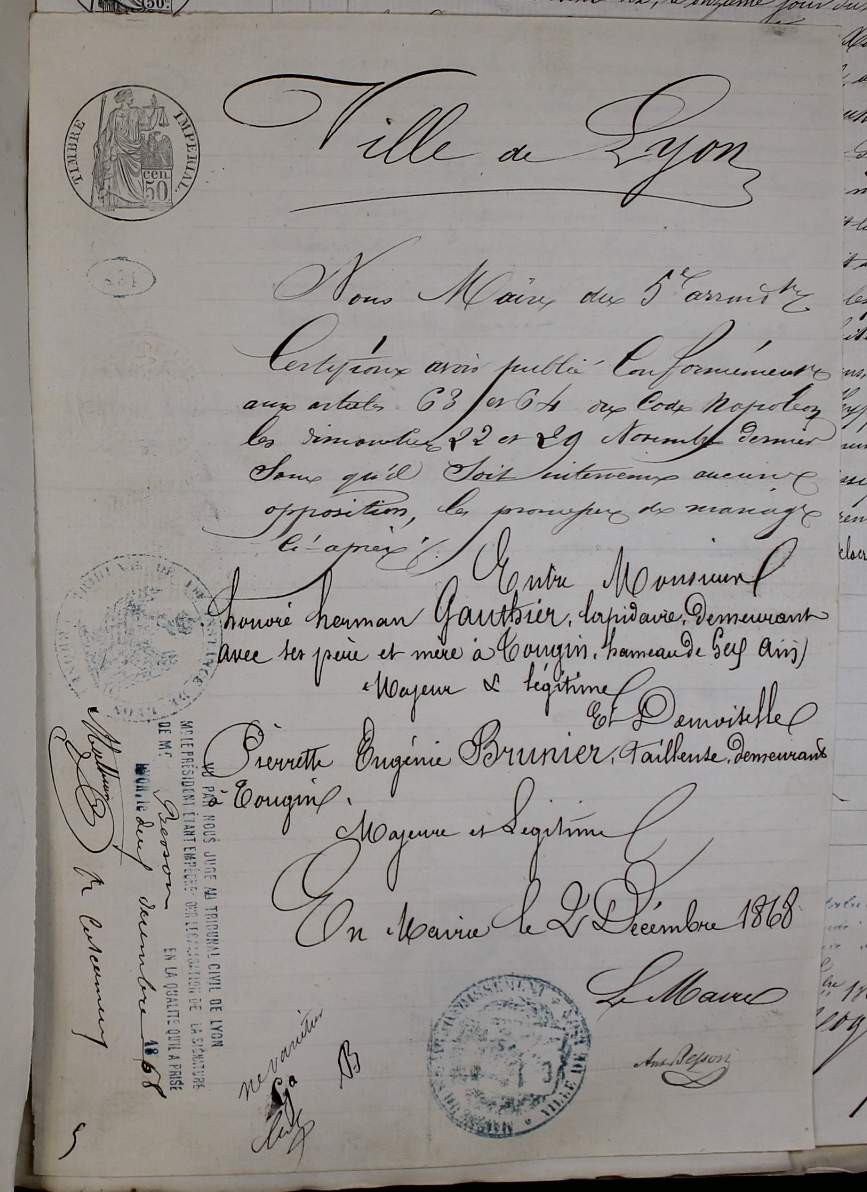 TIMBRE IMPERIAL
50 cen
Ville de Lyon
Nous Maire du 5e arrondt
Certifions avoir publié Conformément
aux articles 63 et 64 du Code Napoléon
les dimanches 22 et 29 Novembre dernier
Sans qu'il Soit intervenu aucune
opposition, les promesses de mariage
Ci-après
Entre Monsieur
honoré herman Gauthier, lapidaire, demeurant
avec ses père et mère à Tougin, hameau de Gex (Ain)
Majeur & légitime
Et Demoiselle
Pierrette Eugénie Brunier, tailleuse, demeurant
à Tougin.
Majeure et Légitime
En Mairie le 2 Décembre 1868
Le Maire
Ant. Besson
VILLE DE LYON
ne varietur
B
VU PAR NOUS JUGE AU TRIBUNAL CIVIL DE LYON
MR LE PRESIDENT ETANT EMPECHE POUR LEGALISATION DE LA SIGNATURE
DE MR Besson EN LA QUALITE QU'IL A PRISE
LYON, le deux décembre 1868